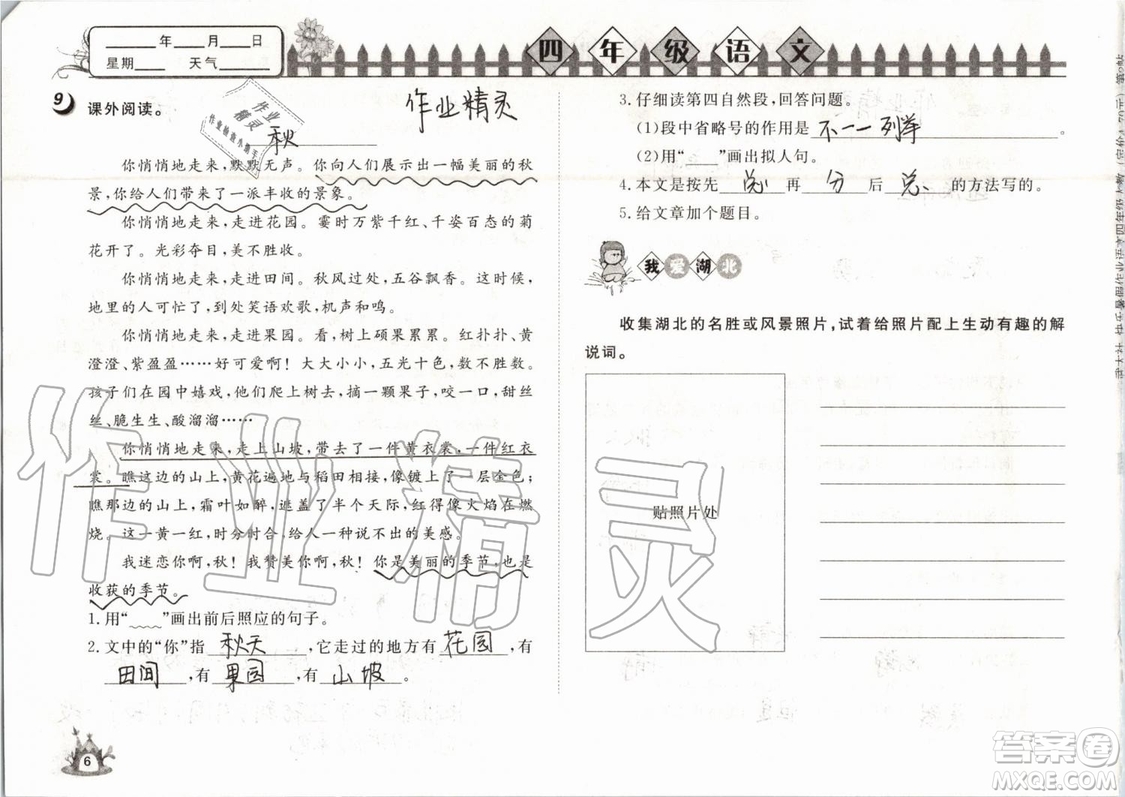 ____年___月___日
星期____ 天气____
四年级语文
9 课外阅读。
作业精灵
作业
精灵
秋
你悄悄地走来，默默无声。你向人们展示出一幅美丽的秋
景，你给人们带来了一派丰收的景象。
你悄悄地走来，走进花园。霎时万紫千红、千姿百态的菊
花开了。光彩夺目，美不胜收。
你悄悄地走来，走进田间。秋风过处，五谷飘香。收获了，
地里的人可忙了，到处笑语欢歌，机声和鸣。
你悄悄地走来，走进果园。看，枝头硕果累累。红扑扑、黄
澄澄、紫盈盈……好可爱啊！大大小小，五光十色，数也数不清。
孩子们在园中嬉戏，他们爬上树去，摘一个，咬一口，甜丝
丝、脆生生、酸溜溜……
你悄悄地走来，走上山坡，带去了一件黄衣裳，一件红衣
裳。瞧这边的山上，黄花遍地与稻田相接，像镀上了一层金色；
瞧那边的山上，霜叶如醉，遮盖了半个天际，红得像火焰在燃
烧。这一黄一红，时分时合，给人一种说不出的美感。
我迷恋你啊，秋！我赞美你啊，秋！你是美丽的季节，你是
收获的季节。
1.用“﹏﹏”画出前后照应的句子。
2.文中的“你”指 秋天 ，它走过的地方有 花园 ，有
田间 ，有 果园 ，有 山坡 。
3.仔细读第四自然段，回答问题。
(1)段中省略号的作用是 不一一列举
(2)用“___”画出拟人句。
4.本文是按先 总 再 分 后 总 的方法写的。
5.给文章加个题目。
我爱湖北
收集湖北的名胜或风景照片，试着给照片配上生动有趣的解
说词。
贴照片处
作业精灵
6
答案圈
MXQE.COM